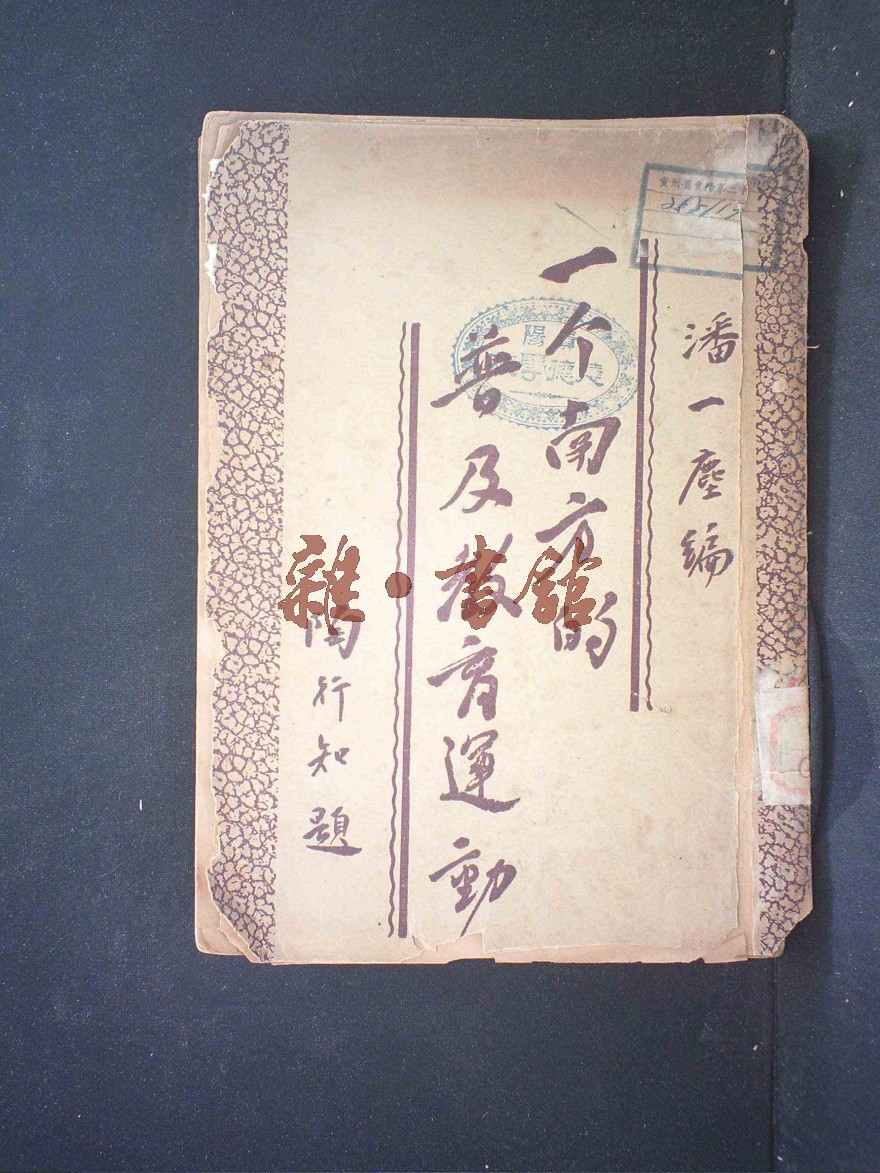 潘一塵編
一个南方的
普及教育運動
陶行知題
雜·書館